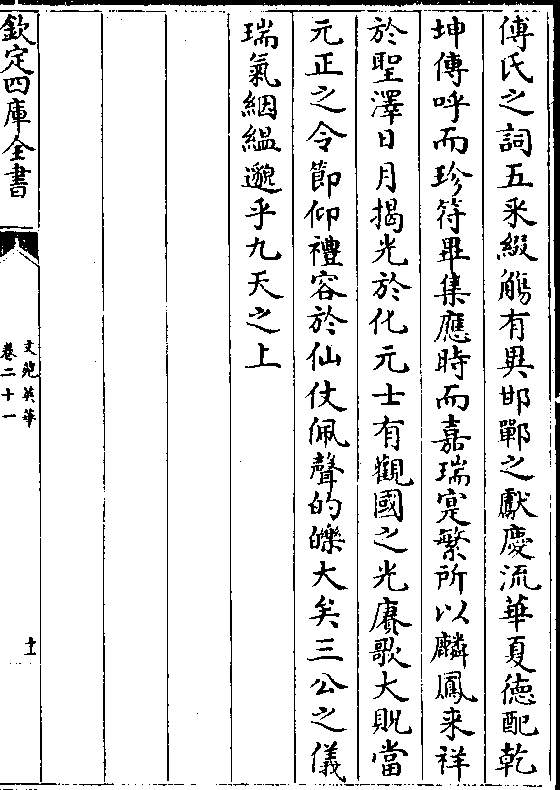 傅氏之詞五釆綴觴有異邯鄲之獻慶流華夏徳配乾
坤傳呼而珍符畢集應時而嘉瑞寔繁所以麟鳳来祥
於聖澤日月揭光於化元士有觀國之光賡歌大貺當
元正之令節仰禮容於仙仗佩聲的皪大矣三公之儀
瑞氣絪緼邈乎九天之上
欽定四庫全書
文苑英華
卷二十一
十一